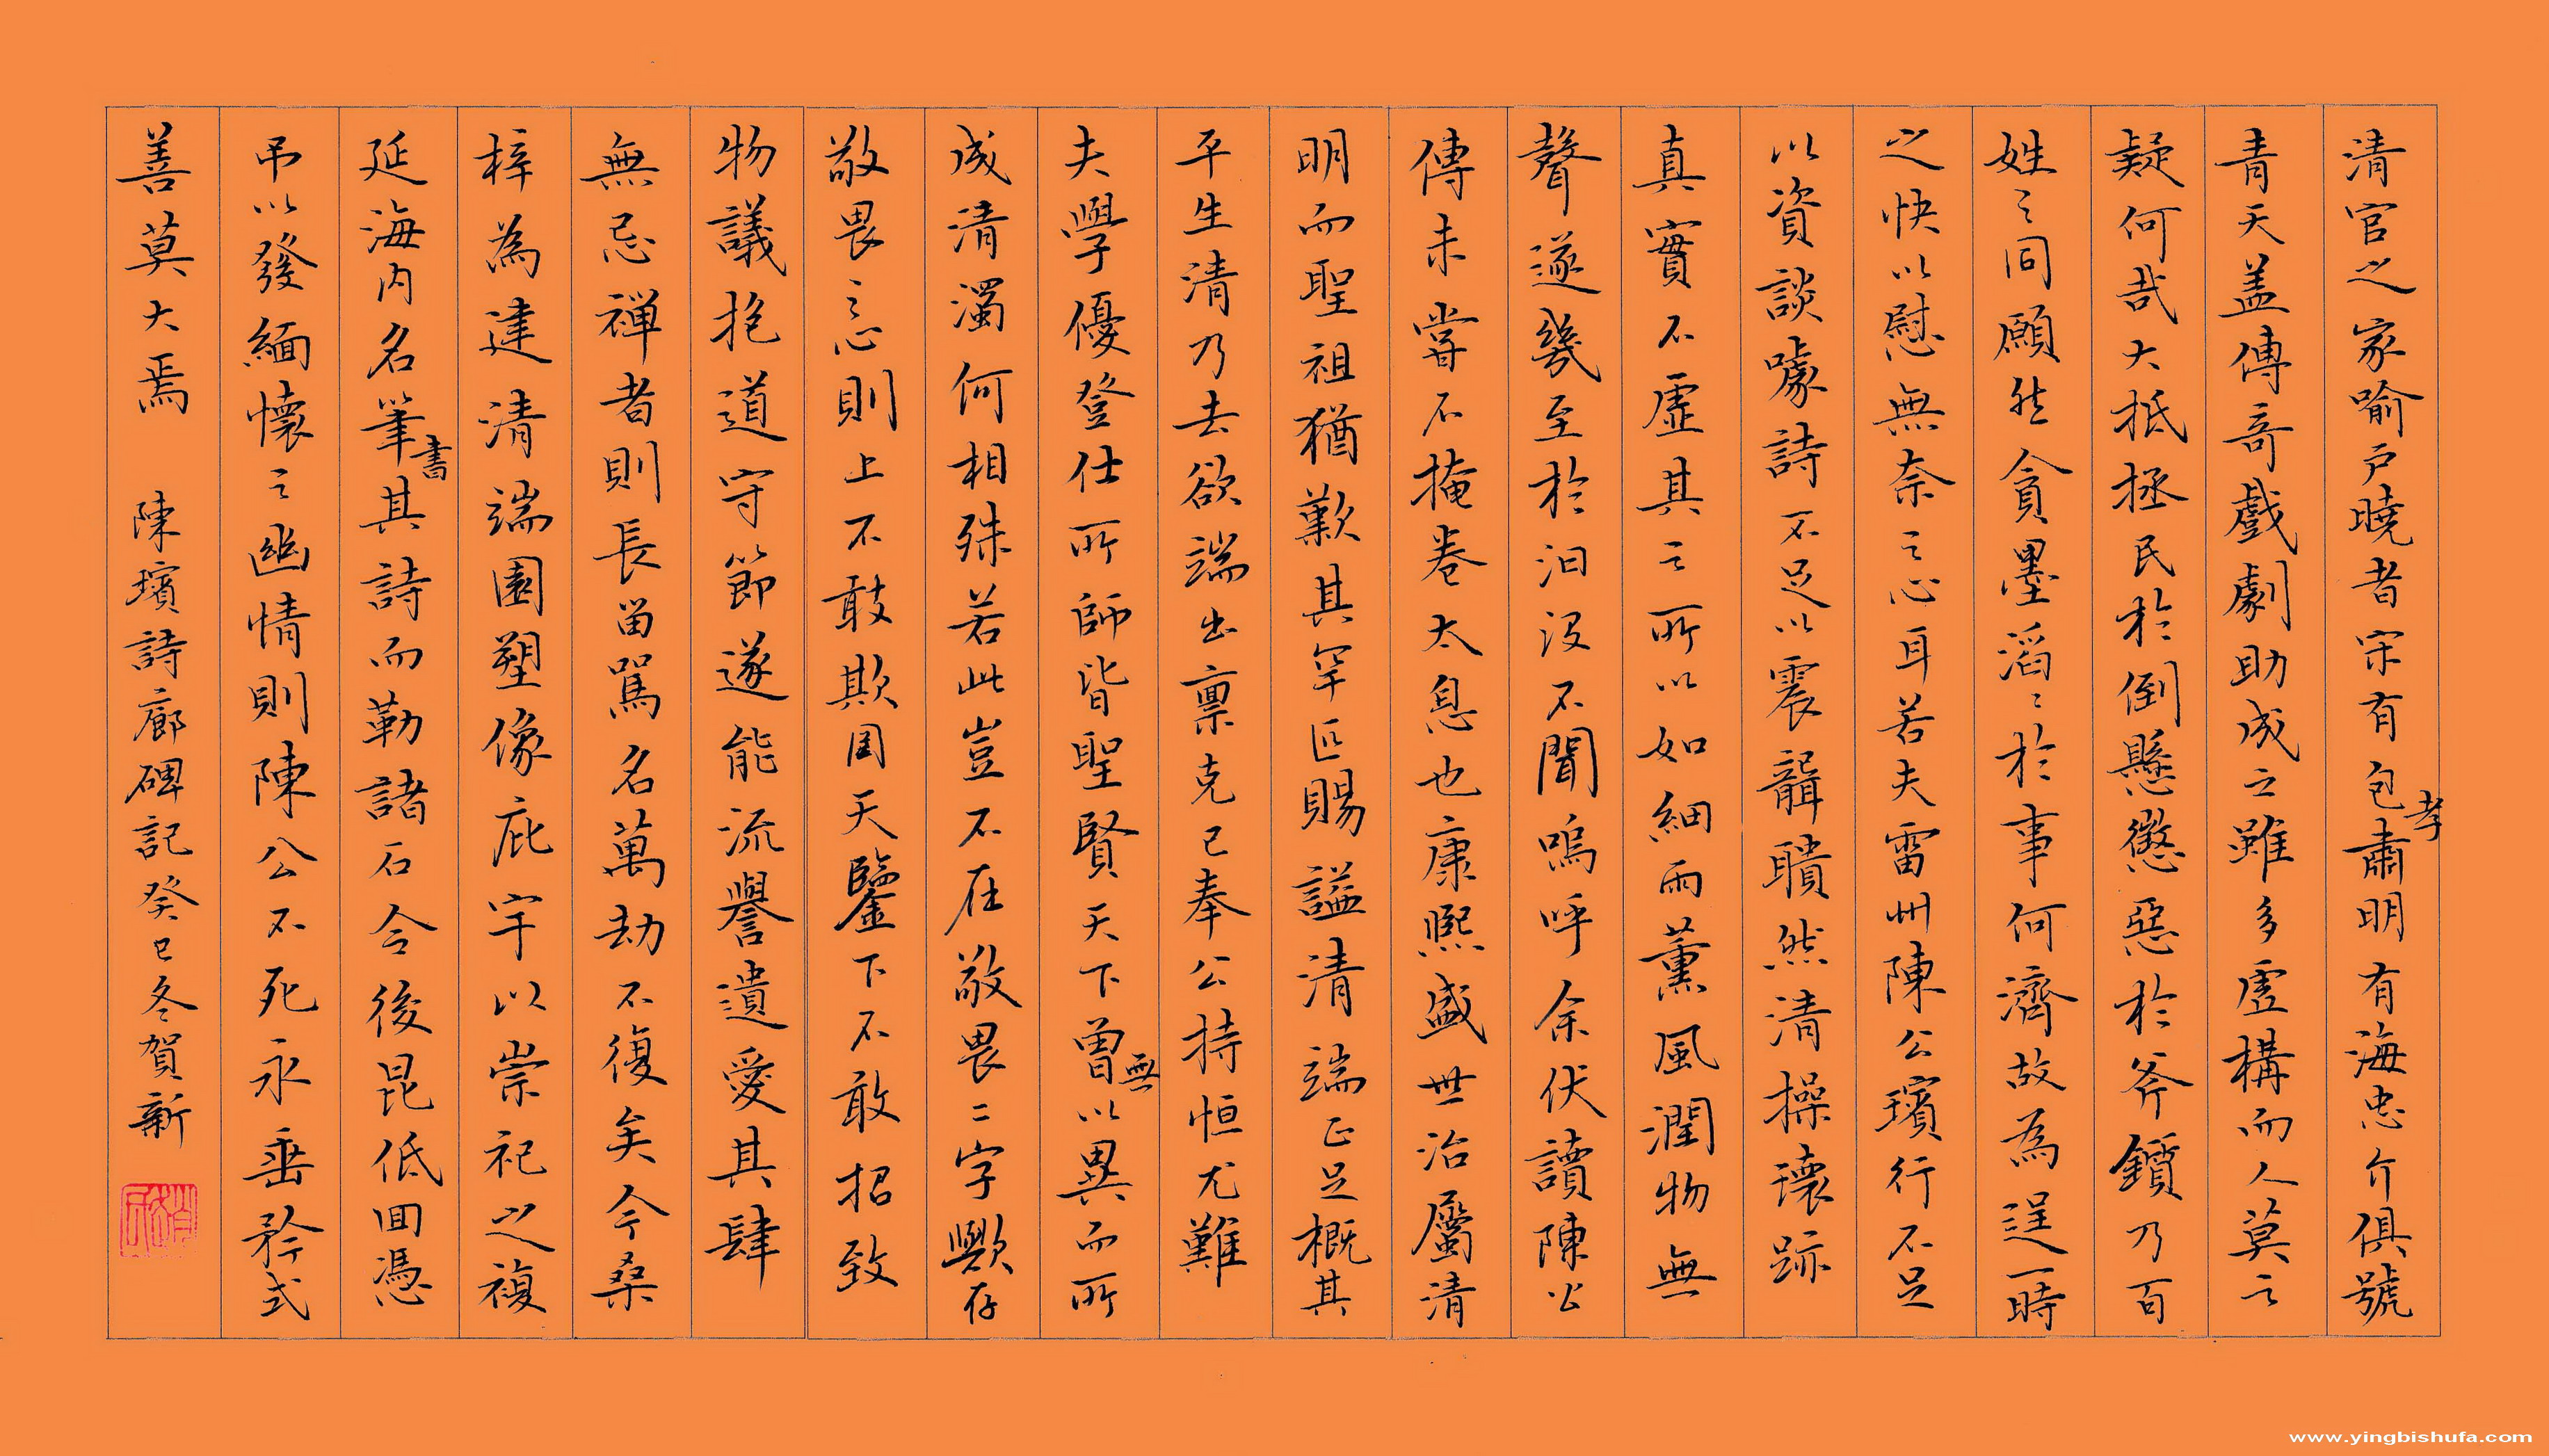 清官之家喻户曉者宋有包孝肅明有海忠介俱號
青天蓋傳奇戲劇助成之雖多虛構而人莫之
疑何哉大抵拯民於倒懸懲惡於斧鑕乃百
姓之同願然貪墨滔滔於事何濟故為逞一時
之快以慰無奈之心耳若夫雷州陳公璸行不足
以資談噱詩不足以震聾聵然清操瓌跡
真實不虛其之所以如細雨薰風潤物無
聲遂幾至於汩沒不聞嗚呼余伏讀陳公
傳未嘗不掩卷太息也康熙盛世治屬清
明而聖祖猶歎其罕匹賜謚清端正足概其
平生清乃去欲端出禀克已奉公持恒尤難
夫學優登仕所師皆聖賢天下曾無以異而所
成清濁何相殊若此豈不在敬畏二字歟存
敬畏之心則上不敢欺罔天鑒下不敢招致
物議抱道守節遂能流譽遺愛其肆
無忌禪者則長留罵名萬劫不復矣今桑
梓為建清端園塑像庇宇以崇祀之複
延海内名筆書其詩而勒諸石令後昆低回憑
吊以發緬懷之幽情則陳公不死永垂矜式
善莫大焉 陳璸詩廊碑記癸巳冬賀新
www.yingbishufa.com